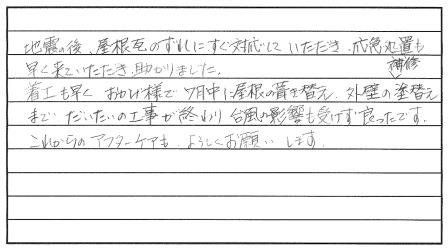 地震の後、屋根瓦のずれにすぐ対応していただき、応急処置も
早く来ていただき、助かりました。
補修
着工も早く おかげ様で 7月中に屋根の葺き替え、外壁の塗替え
まで だいたいの工事が終わり 台風の影響も受けず良かったです。
これからのアフターケアも、よろしくお願いします。